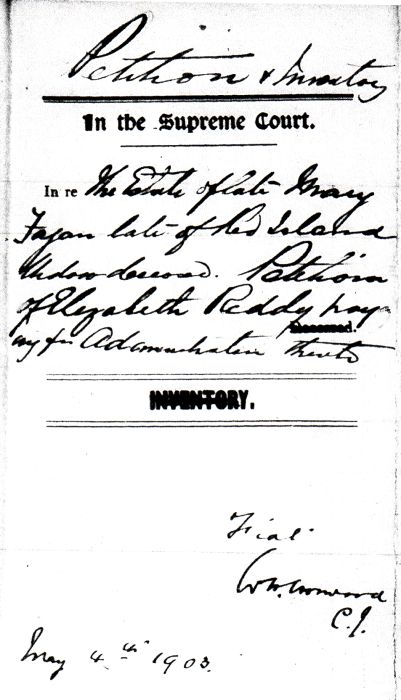 Petition & Inventory
In the Supreme Court.
In re The Estate of late Mary
Fagan late of Red Island
Widow deceased. Petition
of Elizabeth Reddy pray-
Deceased.
ing for Administration thereto
INVENTORY.
Fiat
C.J.
May 4th 1903.